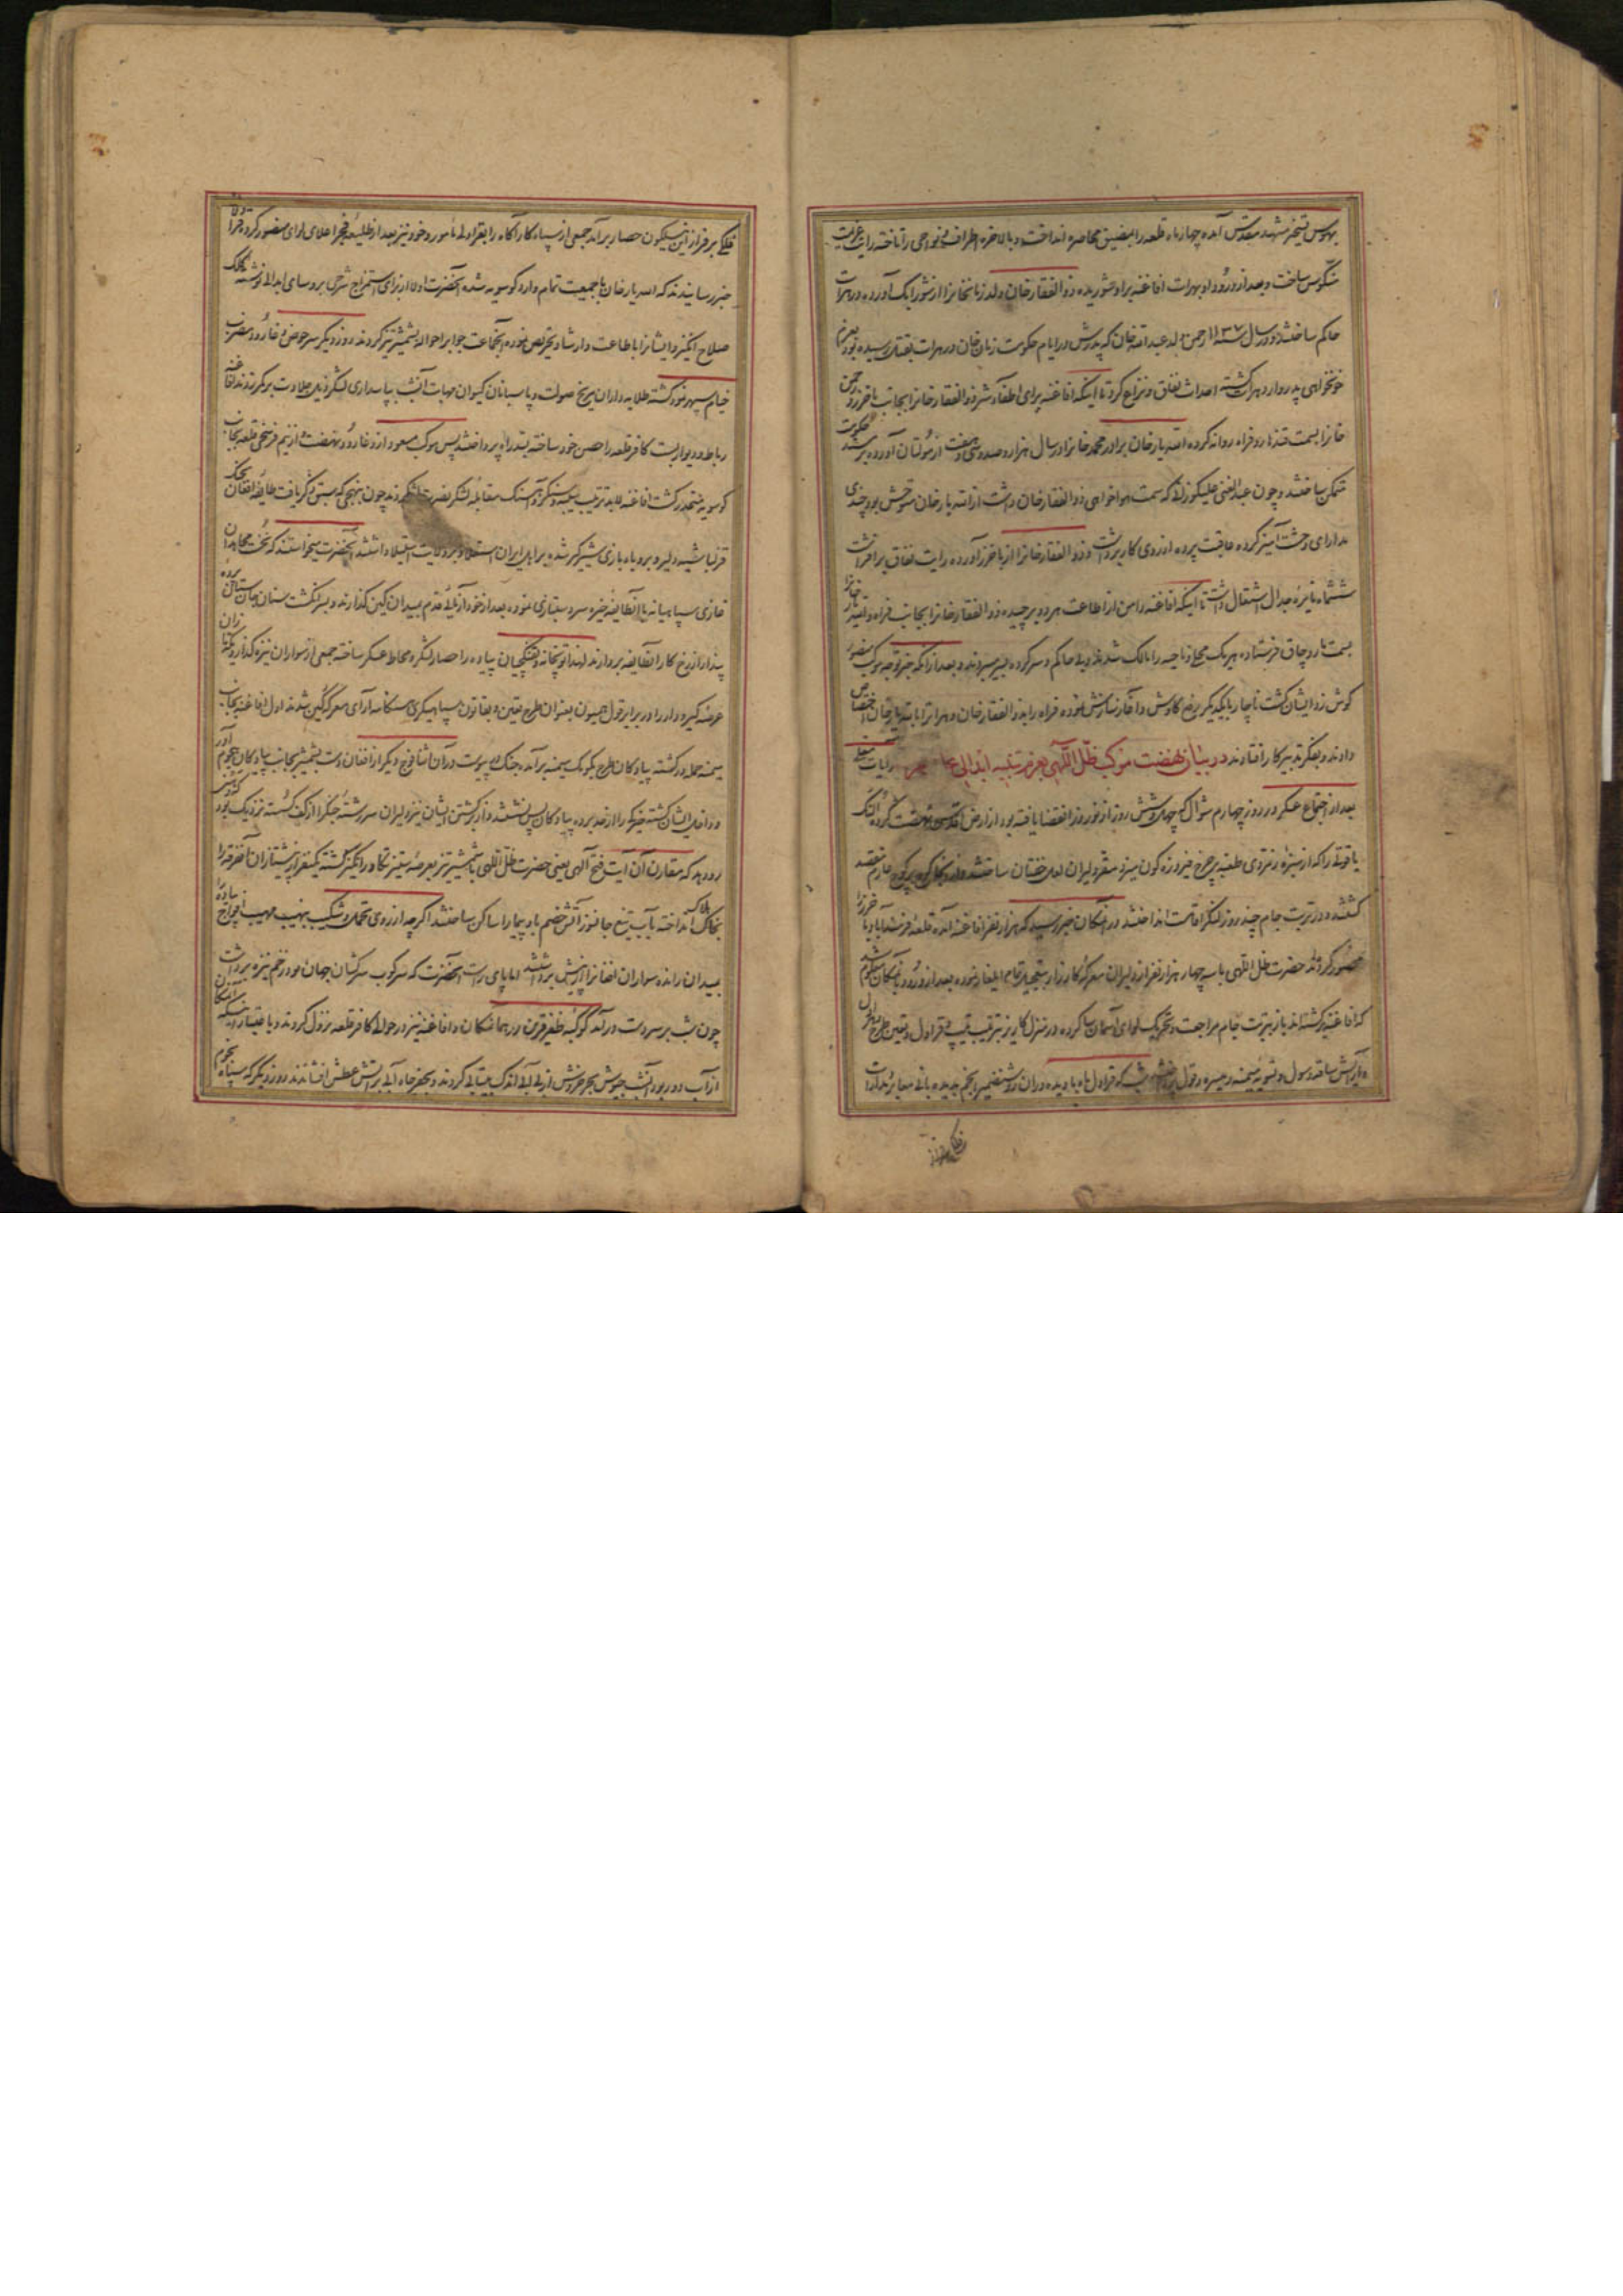 بهوس تسخیر مشهد مقدس آمده چهار ماه قلعه را بمضیق محاصره انداخت و بالاخره اطراف و نواحی را تاخته رایت عزیمت
منکوس ساخت و بعد از ورود او بهرات افاغنه بر او شوریده ذوالفقار خان ولد زمانخانرا از شورابک آورده در هرات
حاکم ساختند و در سال ۱۱۳۷ رحمن ولد عبدالله خان که پدرش در ایام حکومت زمان خان در هرات بقتل رسیده بود بعزم
خونخواهی پدر وارد هرات گشته احداث نفاق و نزاع کرد تا اینکه افاغنه برای اطفاء شر ذوالفقار خانرا بجانب باخرز و رحمن
خانرا بسمت قندهار و فراه روانه کرده الله یار خان برادر محمد خانرا در سال هزار و صد و سی و هفت از مولتان آورده بر مسند حکومت
متمکن ساختند و چون عبدالغنی علیکوزائی که سمت هواخواهی ذوالفقار خان داشت از الله یار خان متوحش بود چندی
مدارای وحشت آمیز کرده عاقبت پرده از روی کار برداشت و ذوالفقار خانرا از باخرز آورده رایت نفاق برافراشت
ششماه نایره جدال اشتعال داشت تا اینکه افاغنه دامن از اطاعت هر دو برچیده ذوالفقار خانرا بجانب فراه و الله یار خانرا
بسمت ماروچاق فرستاده هر یک محل و ناحیه را مالک شدند و بی حاکم و سرکرده بسر میبردند و بعد از آنکه خبر توجه موکب منصور
گوش زد ایشان گشت ناچار با یکدیگر رفع کاوش و آغاز سازش نموده فراه را بذوالفقار خان و هرات را بالله یار خان اختصاص
دادند و بفکر تدبیر کار افتادند در بیان نهضت موکب ظل اللهی بعزم تنبیه ابدالی رایات معلی
بعد از اجتماع عسکر در روز چهارم شوال که چهل و شش روز از نوروز انقضا یافته بود از ارض اقدس نهضت کرده النک
یاقوتی را که از سبزه زمردی طعنه بر چرخ فیروزه گون میزد مقر دلیران لعل خفتان ساختند کوچ بر کوچ عازم مقصد
گشتند و در تربت جام چند روز لنگر اقامت انداختند در آنمکان خبر رسید که هزار نفر افاغنه آمده قلعه فرمندآباد باخرز را
محصور کرده‌اند حضرت ظل اللهی با سه چهار هزار نفر از دلیران معرکه کارزار بتعجیل تمام ایلغار نموده بعد از ورود بآنمکان معلوم شد
که افاغنه برگشته‌اند باز بتربت جام مراجعت و تحریک لوای آسمان سا کرده در منزل کاریز بترتیب تیپ و قراول و تعیین طرح
و آرایش ساقه و سول و تسویه میمنه و میسره و قول پرداختند شب که قراول ماه با دیده‌وران روشنضمیر انجم بدیده بانی معابر مدارات
فلکی بر فراز این نیلگون حصار برآمد جمعی از سپاه کار آگاه را بقراولی مامور و خود نیز بعد از طلیعه فجر اعلای لوای منصور کرده قراولان
خبر رسانیدند که الله یار خان با جمعیت تمام وارد کوسویه شده آنحضرت اولا از برای استمزاج شرحی بروسای ابدالی نوشته بکلک
صلاح انگیز و ایشانرا باطاعت و ارشاد تحریص نموده آنجماعت جوابرا حواله بشمشیر تیز کردند روز دیگر سر حوض و غارو مضرب
خیام سپهر نمود گشته طلایه داران مریخ صولت و پاسبانان کیوان مهابت آنشب بپاسداری لشگر ذیل جلادت بر کمر زدند افاغنه
رباط و دیواربست کافر قلعه را حصن خود ساخته بسد راه پرداختند پس موکب مسعود از غارو نهضت از نیم فرسخی قلعه بجانب
کوسویه منحدر گشت افاغنه لابد ترتیب تعبیه سنگر و آهنگ مقابله لشگر نصرت اثر کردند چون بنهجی که سبق ذکر یافت طایفه افغان بجنگ
قزلباشیه دلیر و بروباه بازی شیرگیر شده بر اهل ایران استعلا و بر ولایت استیلا داشتند آنحضرت میخواستند که نخست مجاهدان
غازی سپاهیانه با آنطایفه خیره سر دستبازی نموده بعد از خودآزمائی قدم بمیدان کین گذارند و بسر انگشت سنان جان ستان پرده
پندار از رخ کار آنطایفه بردارند لهذا توپخانه و تفنگچیان پیاده را حصار لشگر و محاط عسکر ساخته جمعی از سواران نیزه گذار و یکه تازان
عرصه گیر و دار را در برابر قول همیون بعنوان طرح تعیین و بقانون سپاهیگری هنگامه آرای معرکه کین شدند اول افاغنه بجانب
میمنه حمله ور گشته پیادگان طرح بکومک میمنه برآمده جنگ در پیوست در آن اثنا فوج دیگر از افغان دست بشمشیر بجانب پیادگان هجوم آور
و داخل ایشان گشته خیرگی را از حد برده پیادگان پس نشستند و از برگشتن ایشان نیز دلیران سررشته جنگرا از کف گسسته نزدیک بود که شکستی
رو دهد که مقارن آن آیت فتح الهی یعنی حضرت ظل اللهی با شمشیر تیز بعرصه ستیز تکاور انگیز گشته یکنفر از پیشتازان آنفرقه را
بخاک هلاک انداخته بآب تیغ جانسوز آتش خصم بادپیما را ساکن ساختند اگر چه از روی تحمل و شکیب بنهیب مهیب افواج پیاده
بمیدان رانده سواران افغانرا از پیش برداشتند اما پای راست آنحضرت که سرکوب سرکشان جهان بود زخم نیزه برداشت
چون شب بر سر دست درآمد کوکبه ظفر قرین در همانمکان و افاغنه نیز در حوالی کافر قلعه نزول کردند و باعتبار اینکه
از آب دور بود آنشب جیوش بحر خروش از بی آبی اندک بیتابی کردند و بحفر چاه آبی بر آتش عطش افشاندند روز دیگر که سپاه نجوم